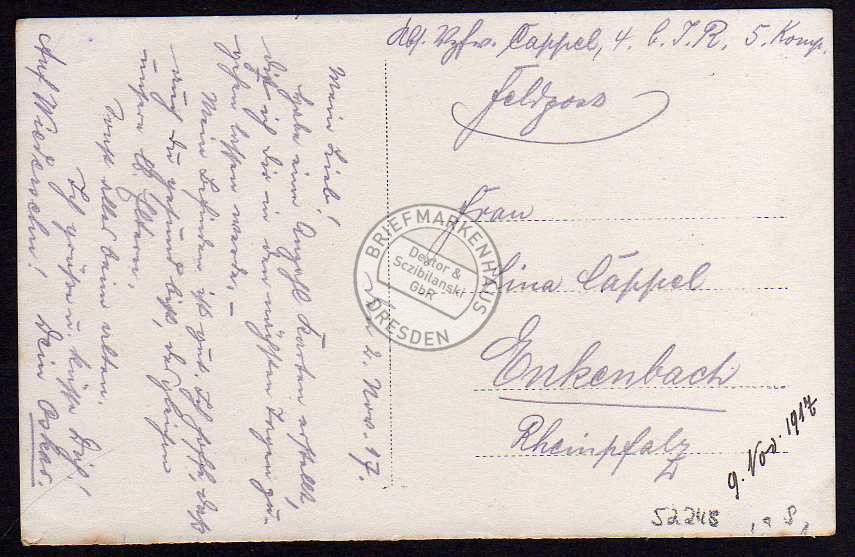 Abs. Vzfw. Cappel, 4. b. I. R. 5. Komp.
Feldpost
Frau
Lina Cappel
Enkenbach
Rheinpfalz
9. Nov. 1917
52248
BRIEFMARKENHAUS
Dektor &
Sczibilanski
GbR
DRESDEN
den 2. Nov. 17.
Mein Lieb!
Habe eine Anzahl Karten erstellt,
die ich dir in den nächsten Tagen zu-
gehen lassen werde. –
Mein Befinden ist gut. Ich hoffe, daß
auch du gesund bist, desgleichen
unsere lb. Eltern.
Sonst alles beim alten.
Ich grüße u. küsse Dich!
Auf Wiedersehn! Dein Oskar.